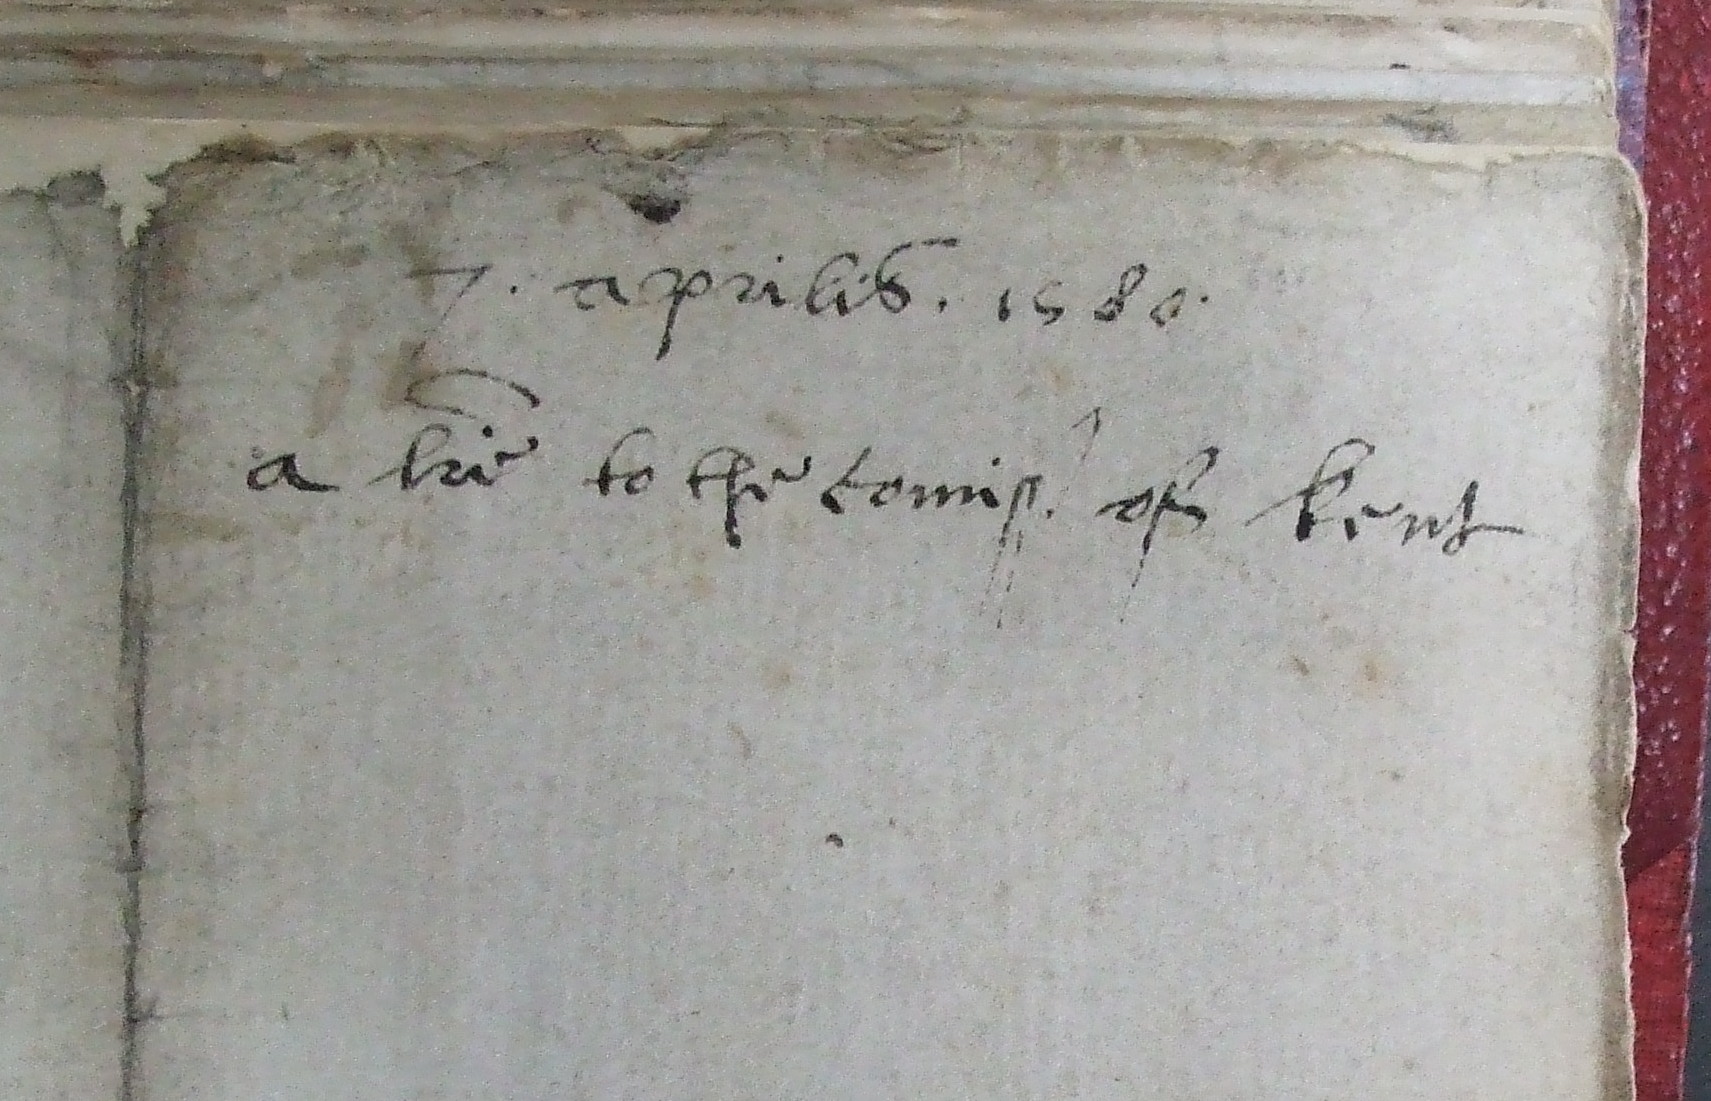 7. aprilis. 1580.
a lre to the Comiss. of Kent